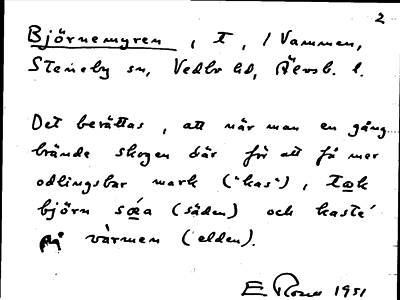 2
Björnemyren, T, i Vammen,
Steneby sn, Vedbo hd, Älvsb. l.
Det berättas, att när man en gång
brände skogen där för att få mer
odlingsbar mark ("kas"), tok
björn såa (säden) och kaste'
på värmen (elden).
E 1951